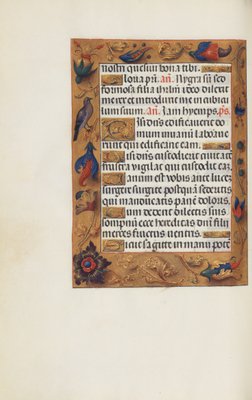 nostri quesivi bona tibi.
loria pri. añ. Nygra sũ sed
formosa filia ihrlm ideo dilexit
me rex et introduxit me in cubicu
lum suum. añ. Iam hyemps. ps.
Nisi dñs edificaverit do
mum in vanũ labore
runt qui edificant eam.
isi dñs custodierit civitatẽ
frustra vigilat qui custodit eaz.
anum est vobis ante lucez
surgere surgite postquã sederitis
qui manducatis panẽ doloris.
um dederit dilectis suis
somnum ecce hereditas dñi filii
merces fructus ventris.
icut sagitte in manu potẽ